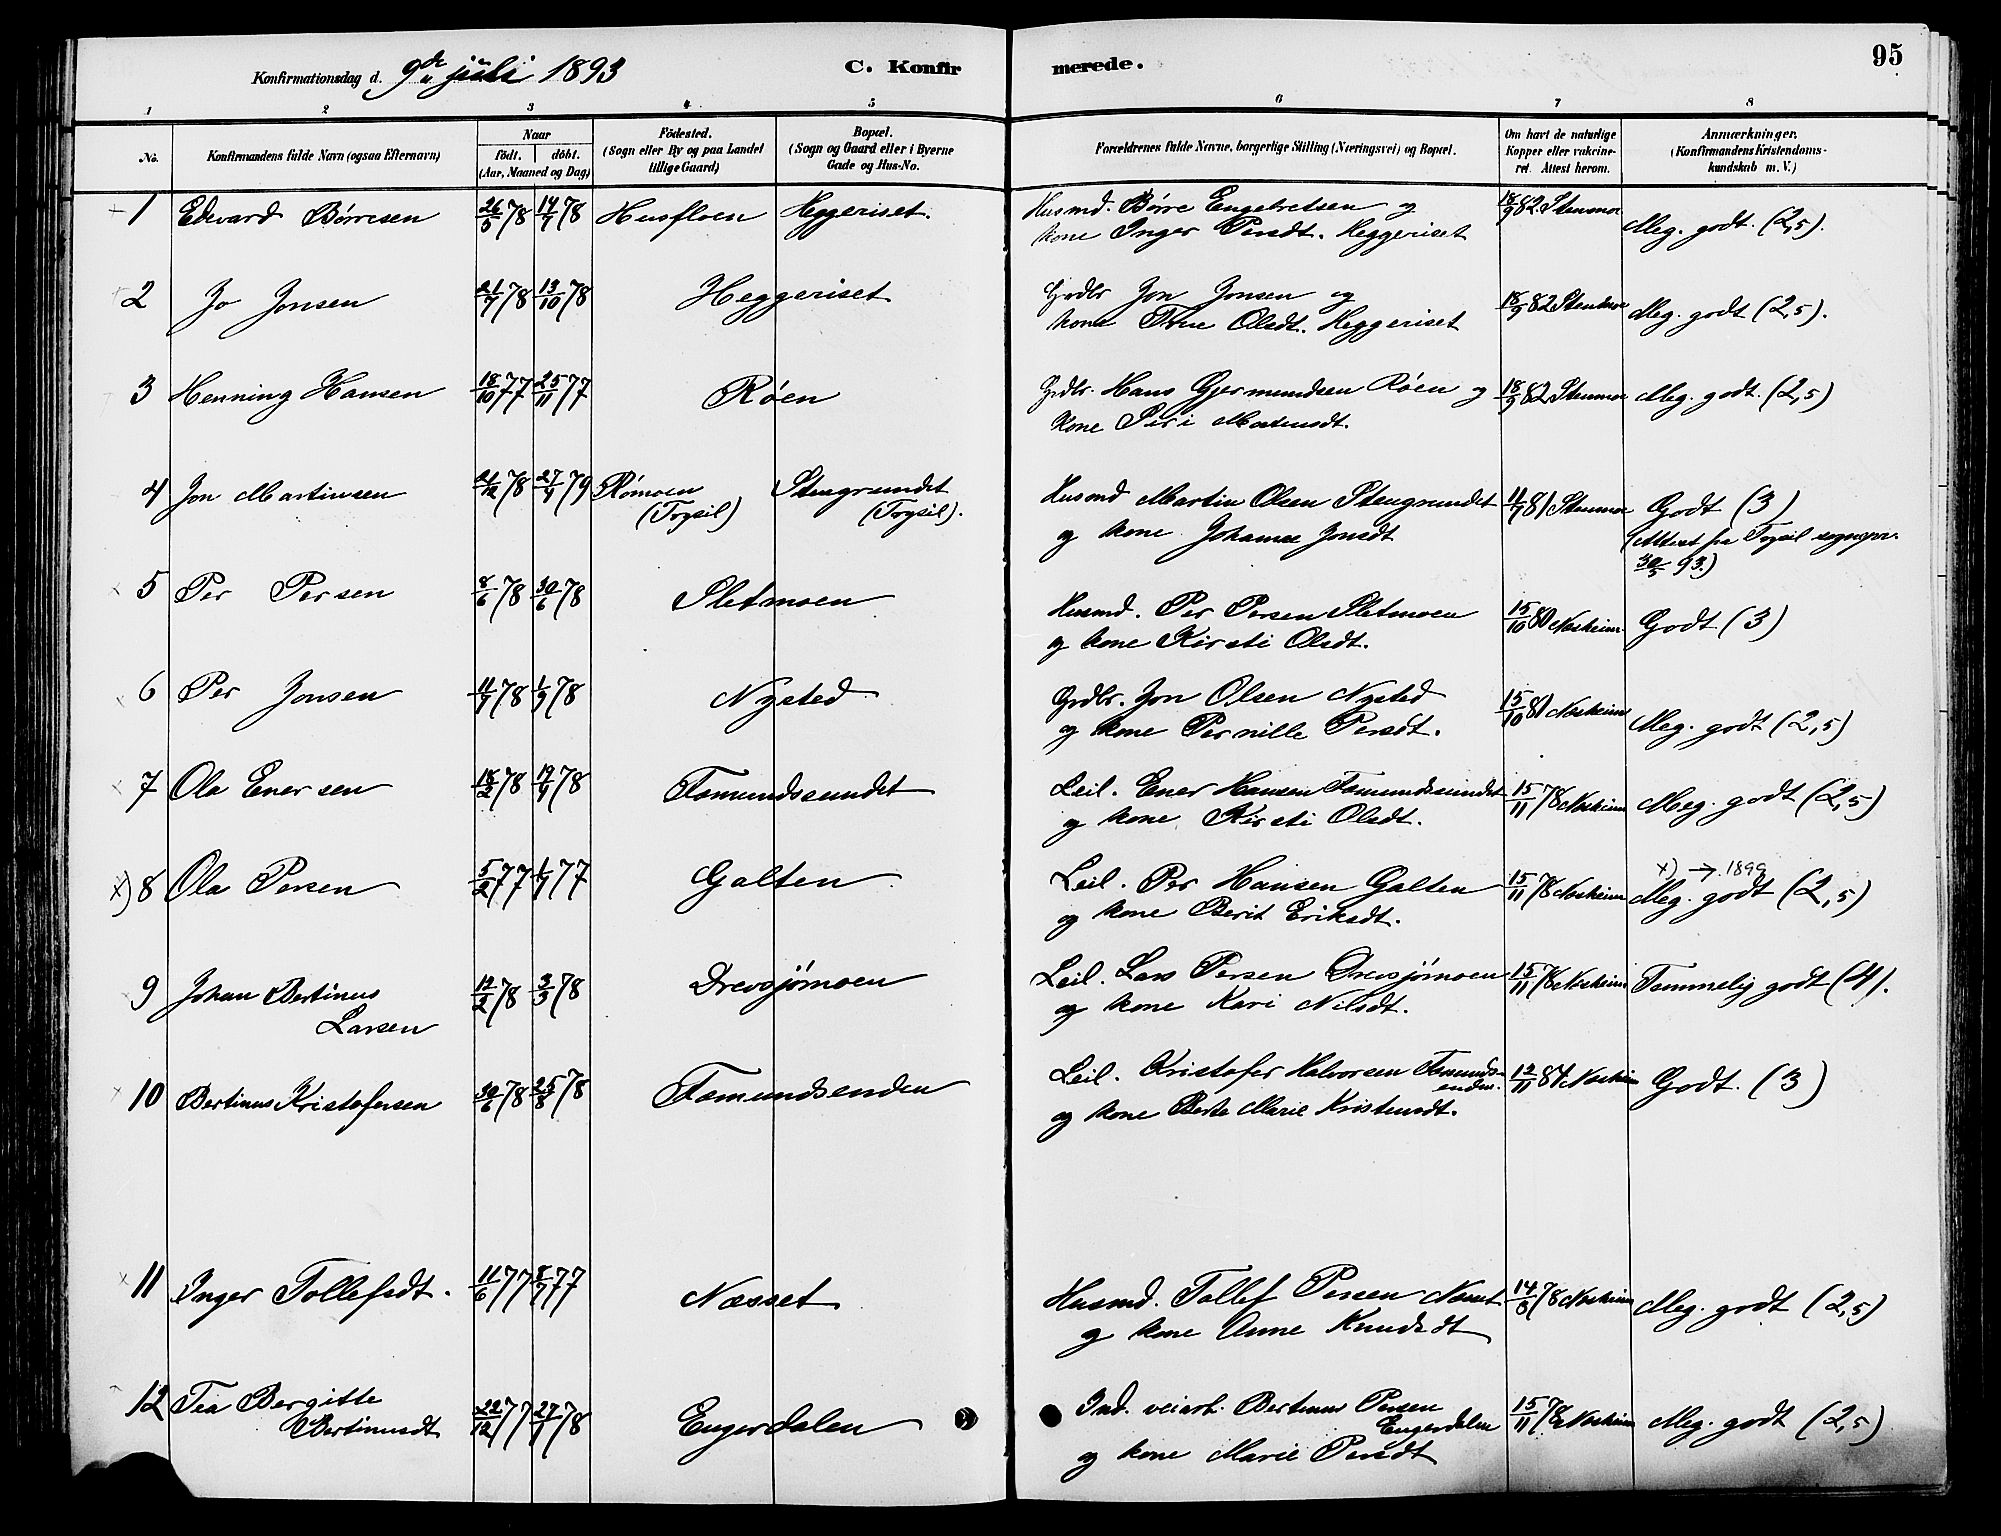 Konfirmationsdag d. 9de juli 1893 C. Konfirmerede. 95
1 2 3 4 5 6 7 8
No. Konfirmandens fulde Navn (ogsaa Efternavn) Naar födt. döbt. (Aar, Maaned og Dag) Födested. (Sogn eller By og paa Landet tillige Gaard) Bopæl. (Sogn og Gaard eller i Byerne Gade og Hus-No. Forældrenes fulde Navne, borgerlige Stilling (Næringsvei) og Bopæl. Om havt de naturlige Kopper eller vakcineret. Attest herom. Anmærkninger. (Konfirmandens Kristendomskundskab m. V.)
1 Edevard Börresen 26/5 78 14/7 78 Husfloen Heggeriset. Husmd. Börre Engebretsen og 18/9 82 Stenmoe Meg. godt. (2,5).
kone Inger Persdt. Heggeriset
2 Jo Jonsen 21/7 78 13/10 78 Heggeriset Grdbr Jon Jonsen og 18/9 82 Stenmoe Meg. godt (2,5).
kone Trne Olsdt. Heggeriset
3 Henning Hansen 18/10 77 25/11 77 Röen Grdbr. Hans Gjermundsen Röen og 18/9 82 Stenmoe Meg. godt. (2,5)
kone Siri Mortensdt.
4 Jon Martinsen 21/12 78 27/4 79 Römoen Stengrundet Husmd Martin Olsen Stengrundet 11/7 81 Stenmoe Godt (3)
(Trysil) (Trysil). og kone Johanne Jonsdt (Attest fra Trysil sognepr.
30/5 93.)
5 Per Persen 8/6 78 30/6 78 Sletmoen Husmd. Per Persen Sletmoen 15/10 80 Noskeim Godt (3)
og kone Kirsti Olsdt.
6 Per Jonsen 11/7 78 1/9 78 Nysted Grdbr. Jon Olsen Nysted 15/10 81 Noskeim Meg. godt (2,5)
og kone Pernille Persdt.
7 Ola Enersen 18/2 78 19/4 78 Fæmundssundet Leil. Ener Hansen Fæmundssundet 15/11 78 Noskeim Meg. godt (2,5)
og kone Kirsti Olsdt.
x) → 1899
x) 8 Ola Persen 5/2 77 1/7 77 Galten Leil. Per Hansen Galten 15/11 78 Noskeim Meg. godt (2,5)
og kone Berit Eriksdt.
9 Johan Bertinus 12/2 78 3/3 78 Drevsjömoen Leil. Lars Persen Drevsjömoen 15/11 78 Noskeim Temmelig godt (4).
Larsen og kone Kari Nilsdt.
10 Bertinus Kristofersen 30/6 78 25/8 78 Fæmundsenden Leil. Kristofer Halvorsen Fæmundsenden. 12/11 84 Noskeim Godt. (3)
og kone Berte Marie Kristensdt.
11 Inger Tollefsdt. 11/6 77 8/7 77 Næsset Husmd. Tollef Persen Næsset 14/8 78 Noskeim Meg. godt (2,5)
og kone Anne Knudsdt
12 Tea Bergitte 22/12 77 27/1 78 Engerdalen Ind. veiarb. Bertinus Persen 15/11 78 Noskeim Meg. godt (2,5)
Bertinusdt Engerdalen
og kone Marie Persdt